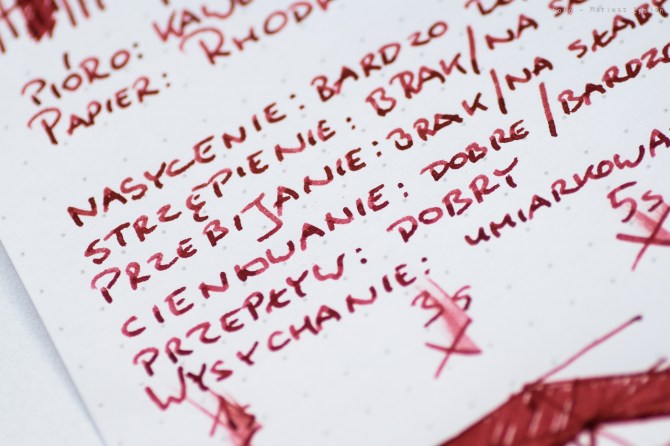 PIÓRO:
PAPIER: RHOD
NASYCENIE: BARDZO
STRZĘPIENIE: BRAK/NA
PRZEBIJANIE: BRAK/NA SŁAB
CIENIOWANIE: DOBRE/BARDZO
PRZEPŁYW: DOBRY
WYSYCHANIE: UMIARKOWA
3s 5s